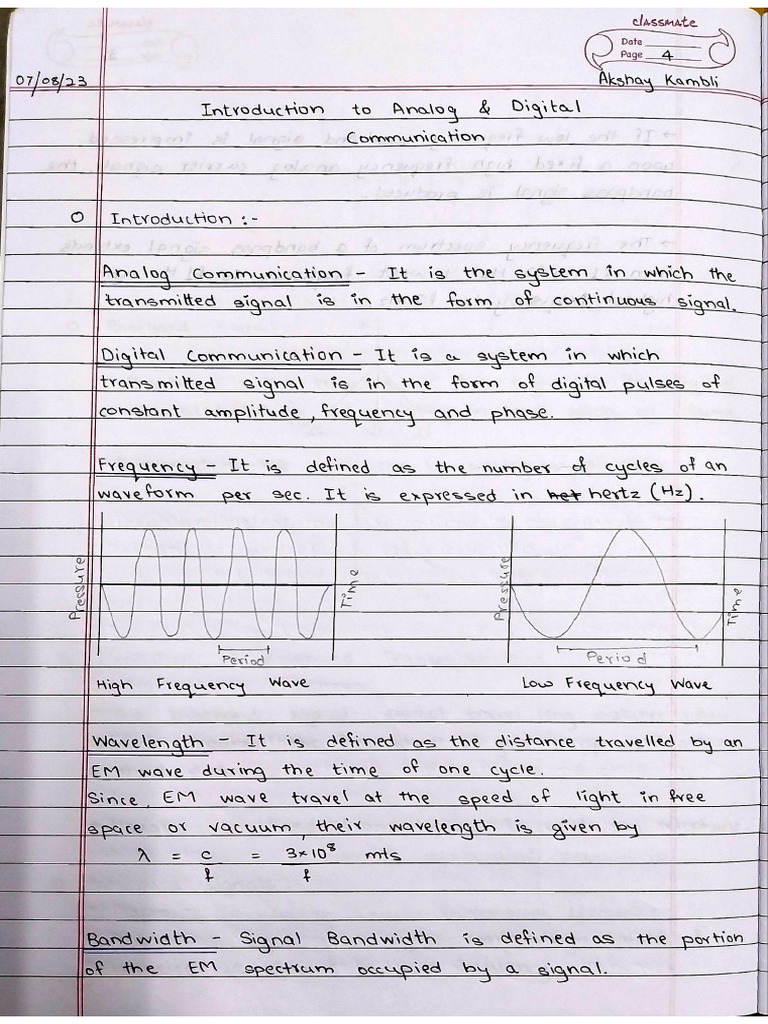 classmate
Date
Page 4
07/08/23
Akshay Kambli
Introduction to Analog & Digital
Communication
O Introduction :-
Analog Communication - It is the system in which the
transmitted signal is in the form of continuous signal.
Digital Communication - It is a system in which
transmitted signal is in the form of digital pulses of
constant amplitude, frequency and phase.
Frequency - It is defined as the number of cycles of an
waveform per sec. It is expressed in het hertz (Hz).
Pressure
Time
Period
High Frequency Wave
Pressure
Time
Period
Low Frequency Wave
Wavelength - It is defined as the distance travelled by an
EM wave during the time of one cycle.
Since, EM wave travel at the speed of light in free
space or vacuum, their wavelength is given by
λ = c/f = 3×10⁸/f mts
Bandwidth - Signal Bandwidth is defined as the portion
of the EM spectrum occupied by a signal.